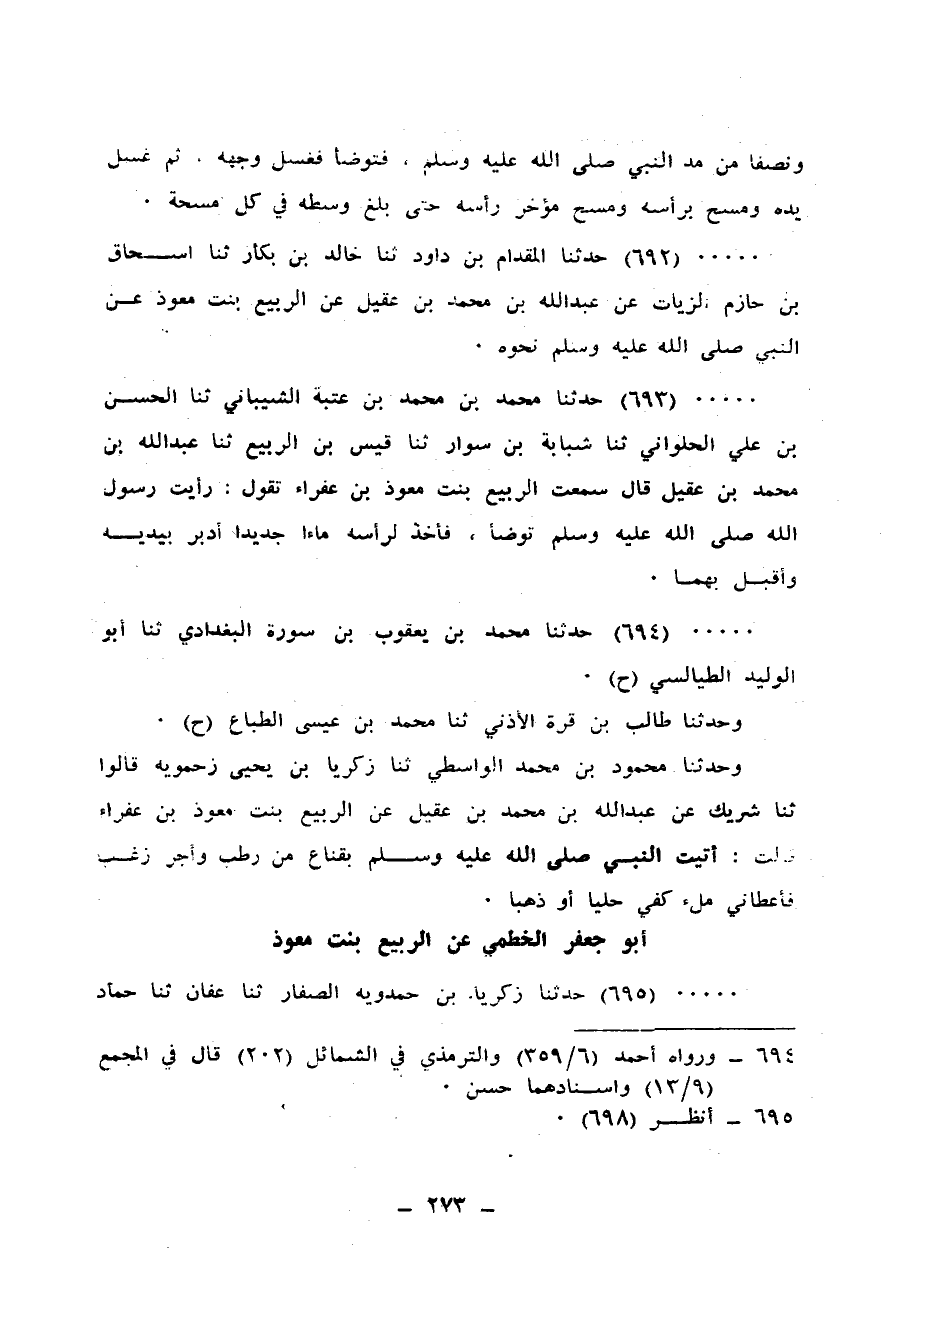 ونصفا من مد النبي صلى الله عليه وسلم ، فتوضأ فغسل وجهه ، ثم غسل
يده ومسح برأسه ومسح مؤخر رأسه حتى بلغ وسطه في كل مسحة ٠
٠٠٠٠٠ (٦٩٢) حدثنا المقدام بن داود ثنا خالد بن بكار ثنا اسـحاق
بن حازم الزيات عن عبدالله بن محمد بن عقيل عن الربيع بنت معوذ عـن
النبي صلى الله عليه وسلم نحوه ٠
٠٠٠٠٠ (٦٩٣) حدثنا محمد بن محمد بن عتبة الشيباني ثنا الحسـن
بن علي الحلواني ثنا شبابة بن سوار ثنا قيس بن الربيع ثنا عبدالله بن
محمد بن عقيل قال سمعت الربيع بنت معوذ بن عفراء تقول : رأيت رسول
الله صلى الله عليه وسلم توضأ ، فأخذ لرأسه ماءا جديدا أدبر بيديـه
وأقبـل بهمـا ٠
٠٠٠٠٠ (٦٩٤) حدثنا محمد بن يعقوب بن سورة البغدادي ثنا أبو
الوليد الطيالسي (ح) ٠
وحدثنا طالب بن قرة الأذني ثنا محمد بن عيسى الطباع (ح) ٠
وحدثنا محمود بن محمد الواسطي ثنا زكريا بن يحيى زحمويه قالوا
ثنا شريك عن عبدالله بن محمد بن عقيل عن الربيع بنت معوذ بن عفراء
قالت : أتيت النبـي صلى الله عليه وسـلم بقناع من رطب وأجر زغـب
فأعطاني ملء كفي حليا أو ذهبا ٠
أبو جعفر الخطمي عن الربيع بنت معوذ
٠٠٠٠٠ (٦٩٥) حدثنا زكريا بن حمدويه الصفار ثنا عفان ثنا حماد
٦٩٤ ـ ورواه أحمد (٣٥٩/٦) والترمذي في الشمائل (٢٠٢) قال في المجمع
(١٣/٩) واسـنادهما حسن ٠
٦٩٥ ـ أنظـر (٦٩٨) ٠
ـ ٢٧٣ ـ